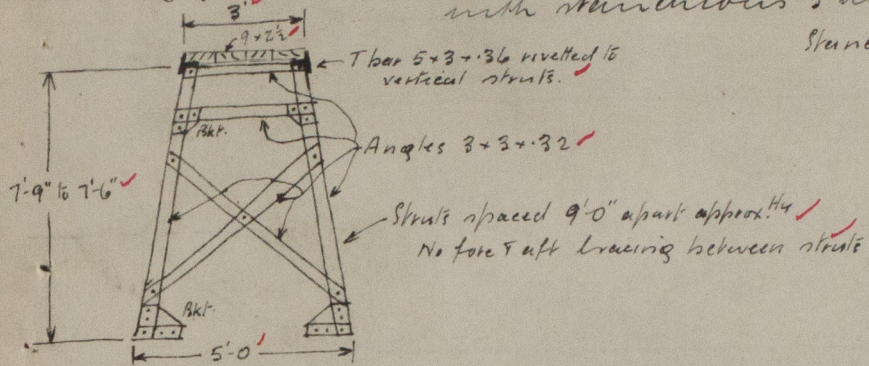 3'
with stanchions
9 × 2½
T bar 5 × 3 × .36 rivetted to
vertical struts.
Bkt.
Angles 3 × 3 × .32
7'-9" to 7'-6"
Struts spaced 9'-0" apart approx.
No fore & aft bracing between struts
Bkt.
5'-0"